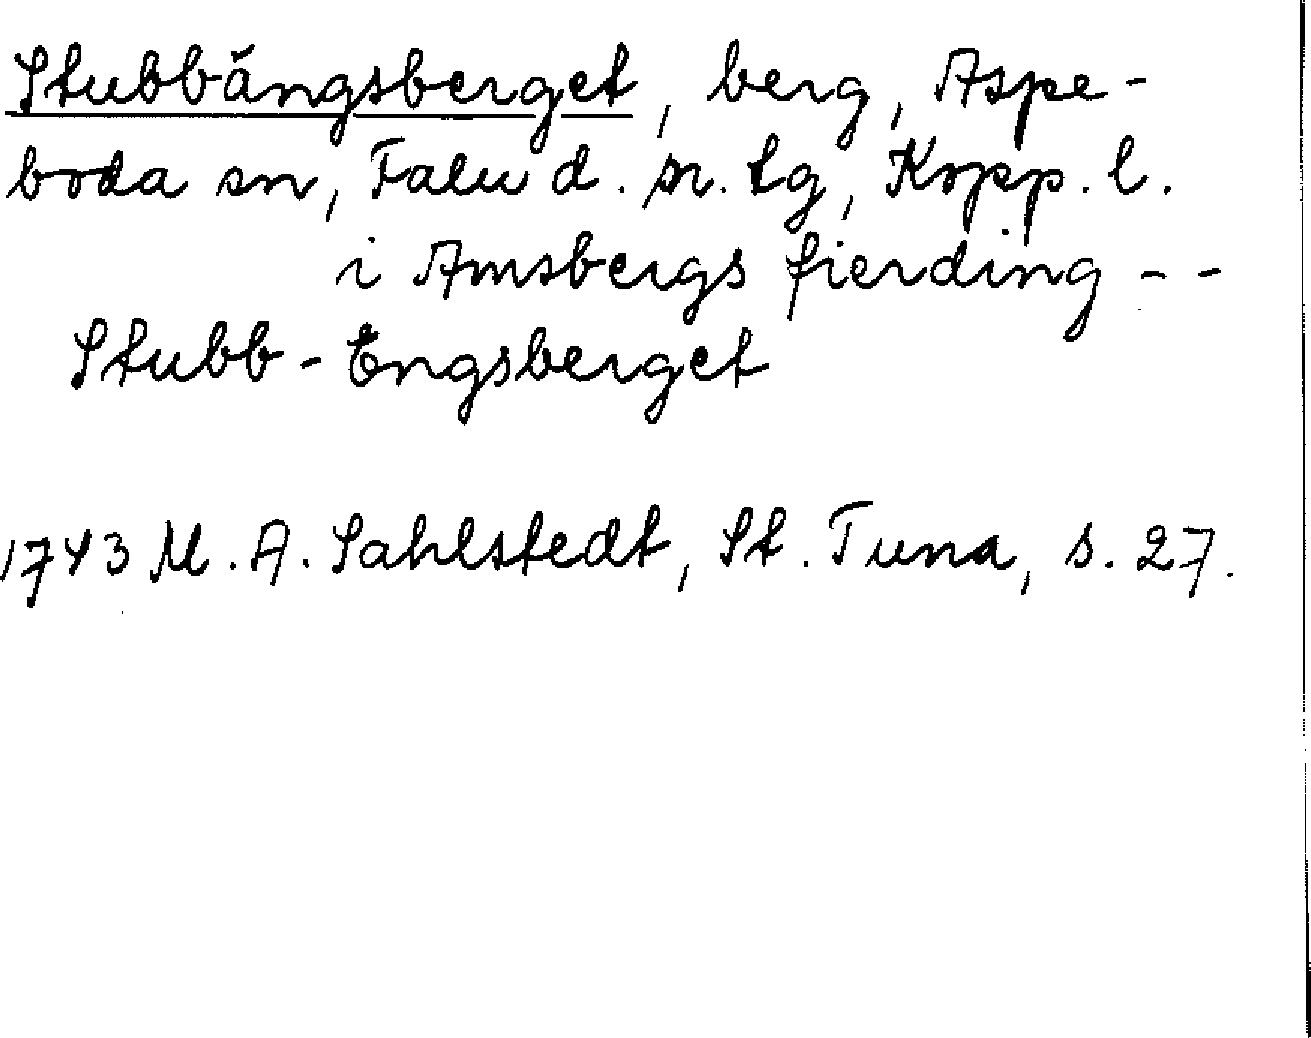 Stubbängsberget, berg, Aspe-
boda sn, Falu d. n. tg, Kopp. l.
i Amsbergs fierding - -
Stubb-Engsberget
1743 M. A. Sahlstedt, St. Tuna, s. 27.